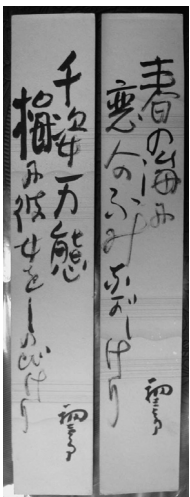 春の海に
恋人のふみ ながしけり
千姿万態
梅に彼女を しのびけり